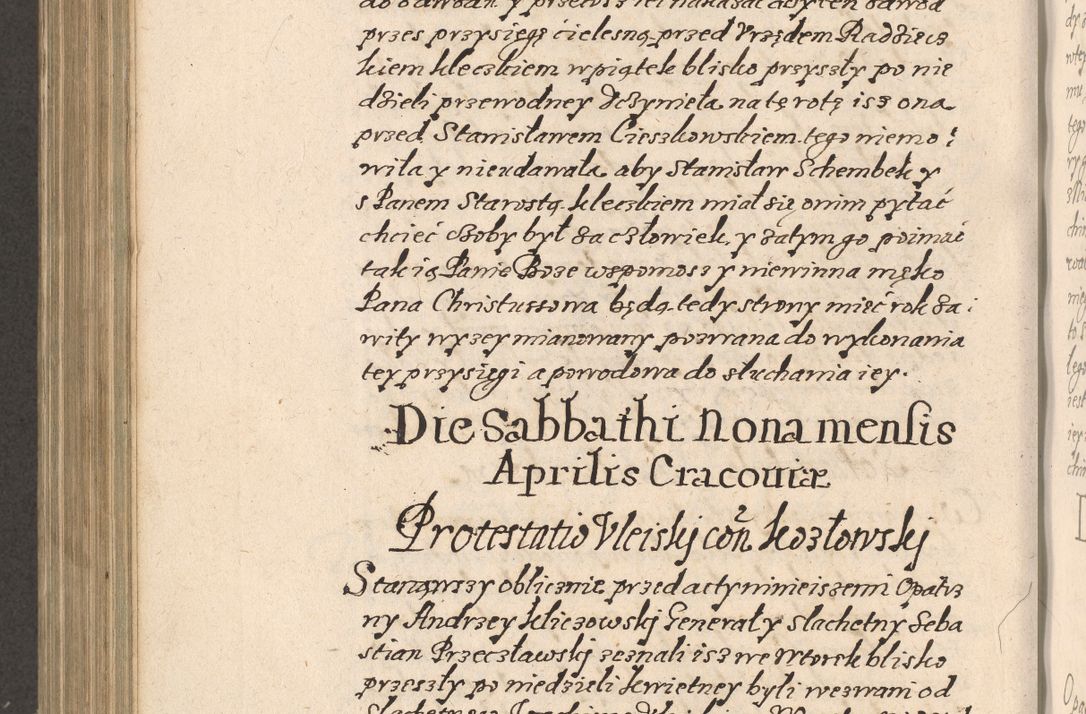 do odwodu y przetosz iei nakazać aby ten odwod
przes przysięgę cielesną przed Vrzędem Radziecz
kiem kleczkiem w piątek blisko przyszły po nie
dzieli przewodney vczyniela na tę rotę isz ona
przed Stanisławem Cieszkowskiem tego niemo
wiła y nieudawała aby Stanisław Schembek y
s Panem Starostą kleczkiem miał się onim pytać
chcieć czoby był za człowiek y zatym go poimać
tak ią Panie Boze wspomosz y niewinna męko
Pana Christussowa będą tedy strony mieć rok za
wity wyzey mianowany pozwana do wykonania
tey przysięgi a powodowa do słuchania iey.
Die Sabbathi Nona mensis
Aprilis Cracouiæ
Protestatio Vleiskj con Kozłowskj
Stanąwszy oblicznie przed acty ninieiszemi Opatrz
ny Andrzey Kliczowskj Generał y slachetny Seba
stian Przecławskj zeznali isz we Wtorek blisko
przeszły po niedzieli kwietney byli wezwani od